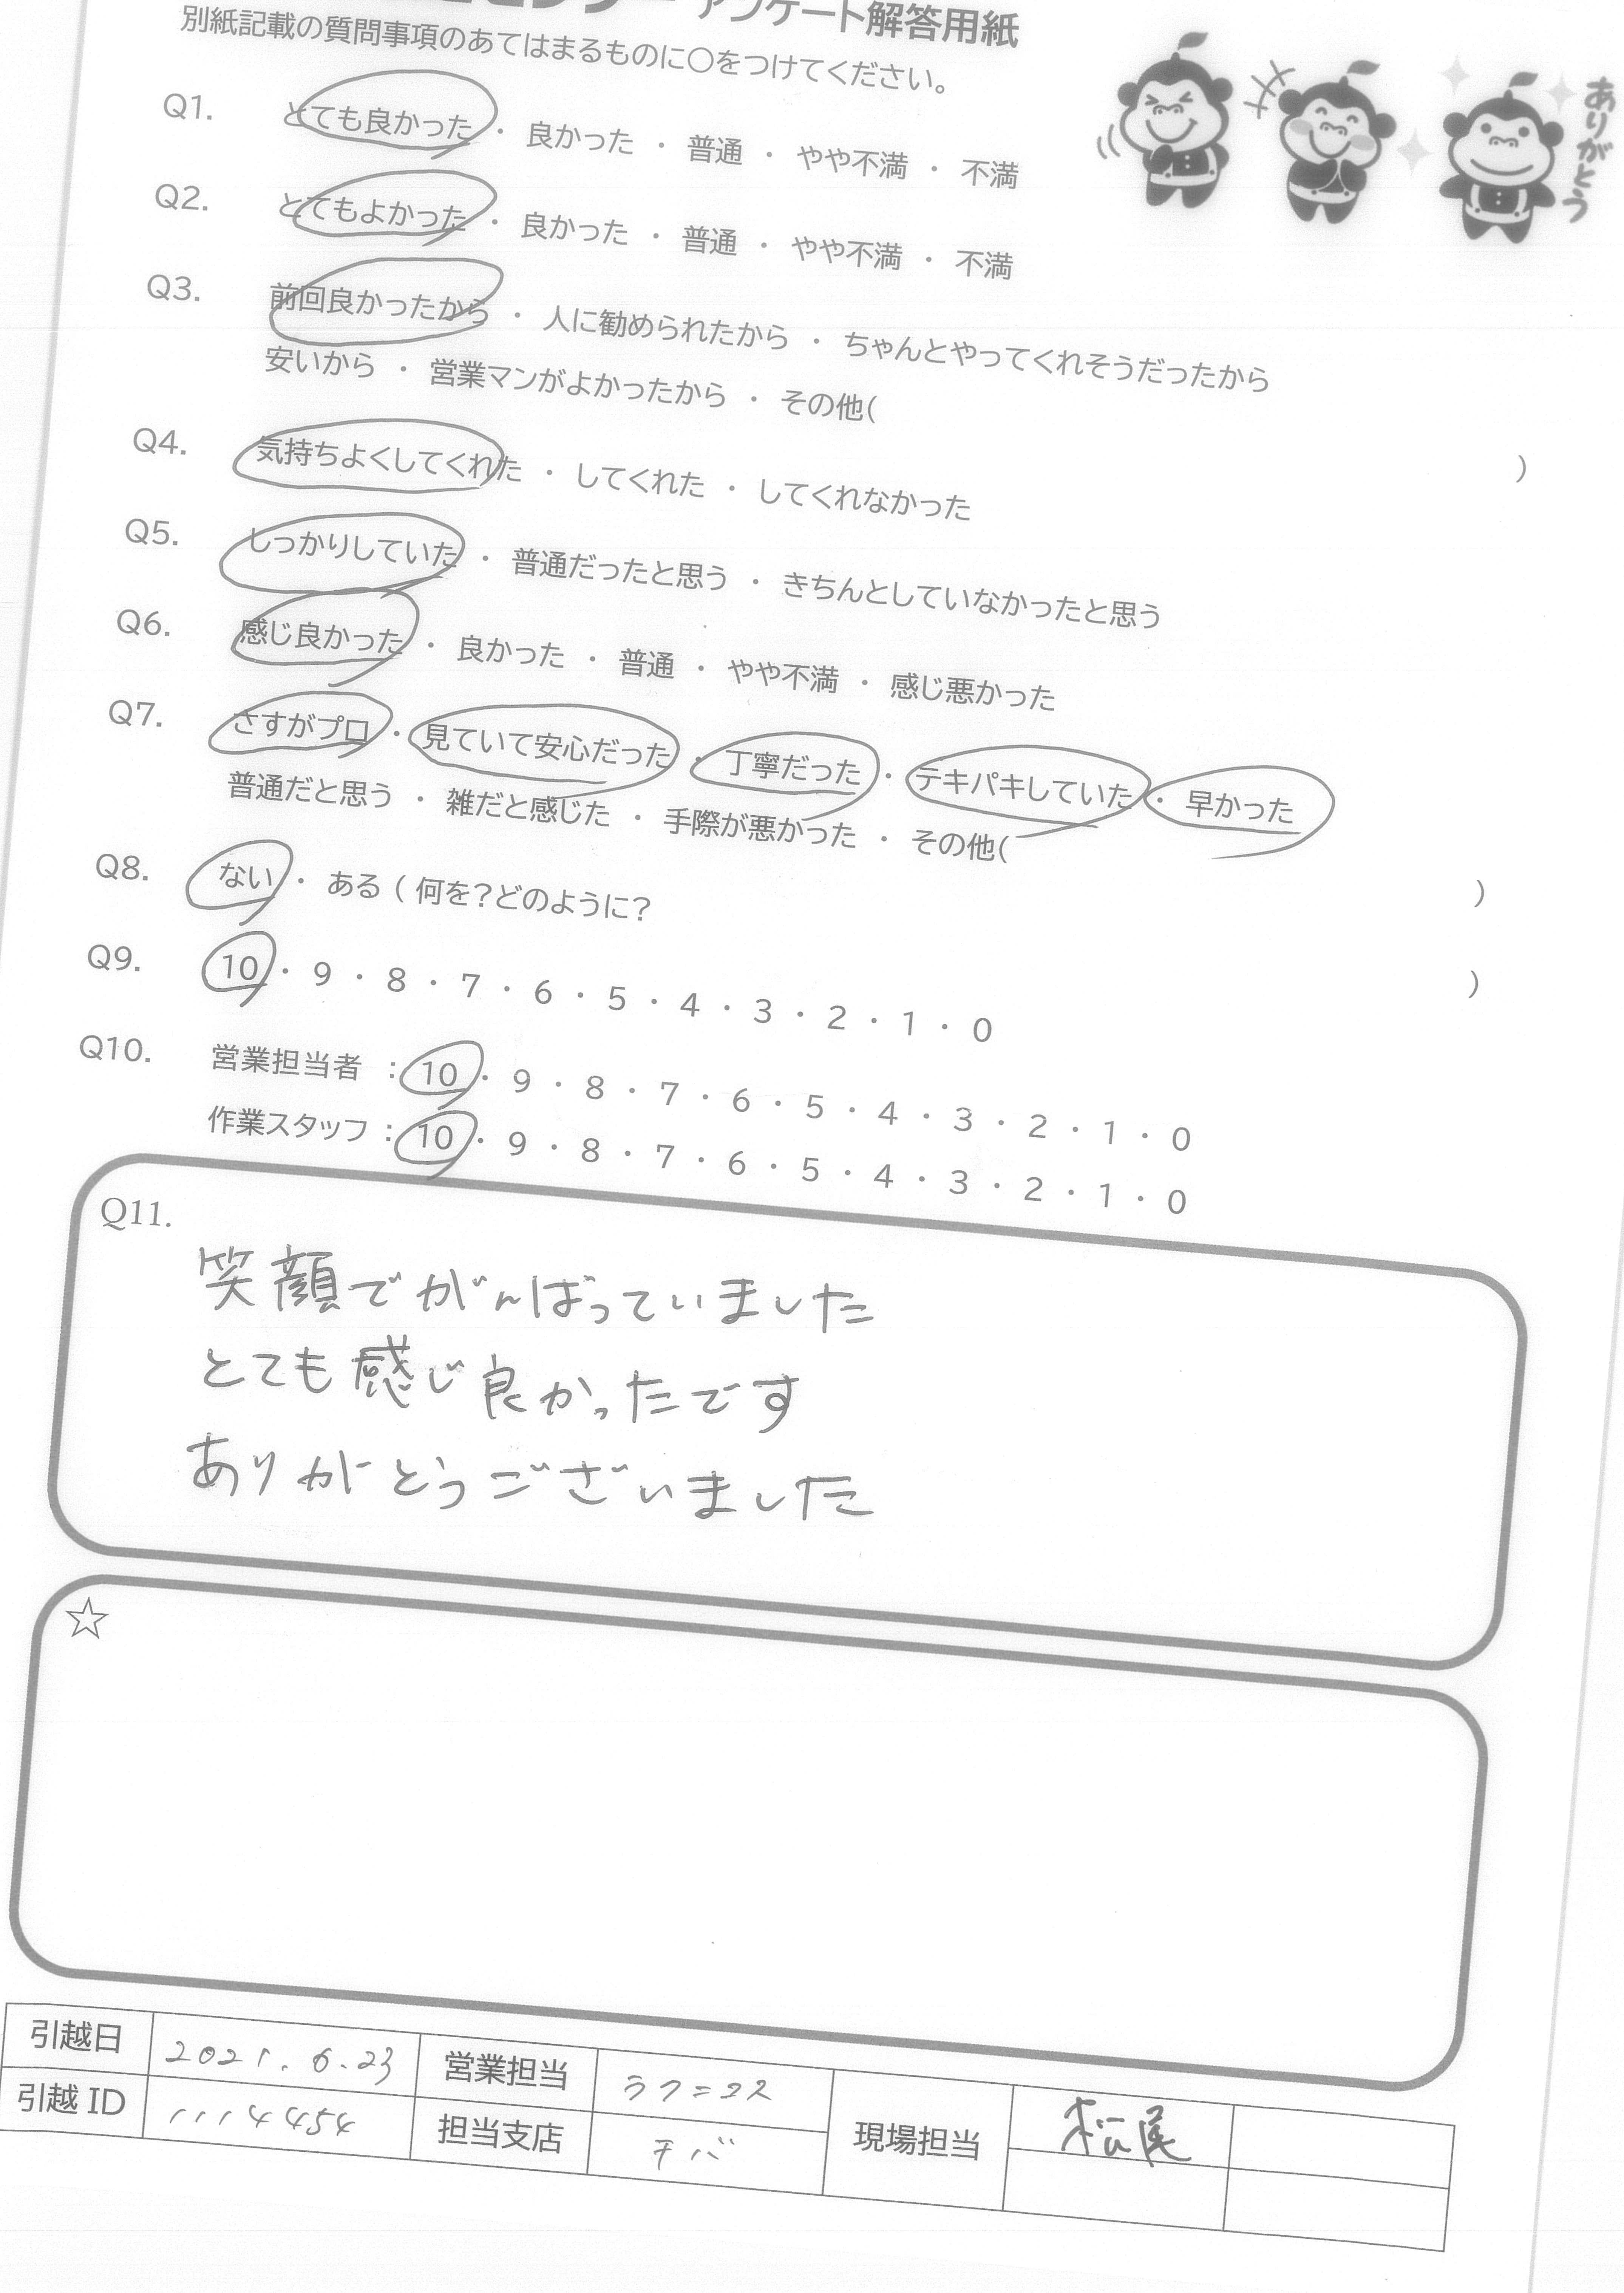 アンケート解答用紙
別紙記載の質問事項のあてはまるものに○をつけてください。
ありがとう
Q1. とても良かった ・ 良かった ・ 普通 ・ やや不満 ・ 不満
Q2. とてもよかった ・ 良かった ・ 普通 ・ やや不満 ・ 不満
Q3. 前回良かったから ・ 人に勧められたから ・ ちゃんとやってくれそうだったから
安いから ・ 営業マンがよかったから ・ その他( )
Q4. 気持ちよくしてくれた ・ してくれた ・ してくれなかった
Q5. しっかりしていた ・ 普通だったと思う ・ きちんとしていなかったと思う
Q6. 感じ良かった ・ 良かった ・ 普通 ・ やや不満 ・ 感じ悪かった
Q7. さすがプロ ・ 見ていて安心だった ・ 丁寧だった ・ テキパキしていた ・ 早かった
普通だと思う ・ 雑だと感じた ・ 手際が悪かった ・ その他( )
Q8. ない ・ ある ( 何を?どのように? )
Q9. 10 ・ 9 ・ 8 ・ 7 ・ 6 ・ 5 ・ 4 ・ 3 ・ 2 ・ 1 ・ 0
Q10. 営業担当者 : 10 ・ 9 ・ 8 ・ 7 ・ 6 ・ 5 ・ 4 ・ 3 ・ 2 ・ 1 ・ 0
作業スタッフ : 10 ・ 9 ・ 8 ・ 7 ・ 6 ・ 5 ・ 4 ・ 3 ・ 2 ・ 1 ・ 0
Q11.
笑顔でがんばっていました
とても感じ良かったです
ありがとうございました
☆
引越日 2021.6.23 営業担当
引越 ID 1114454 担当支店 チバ 現場担当 松尾